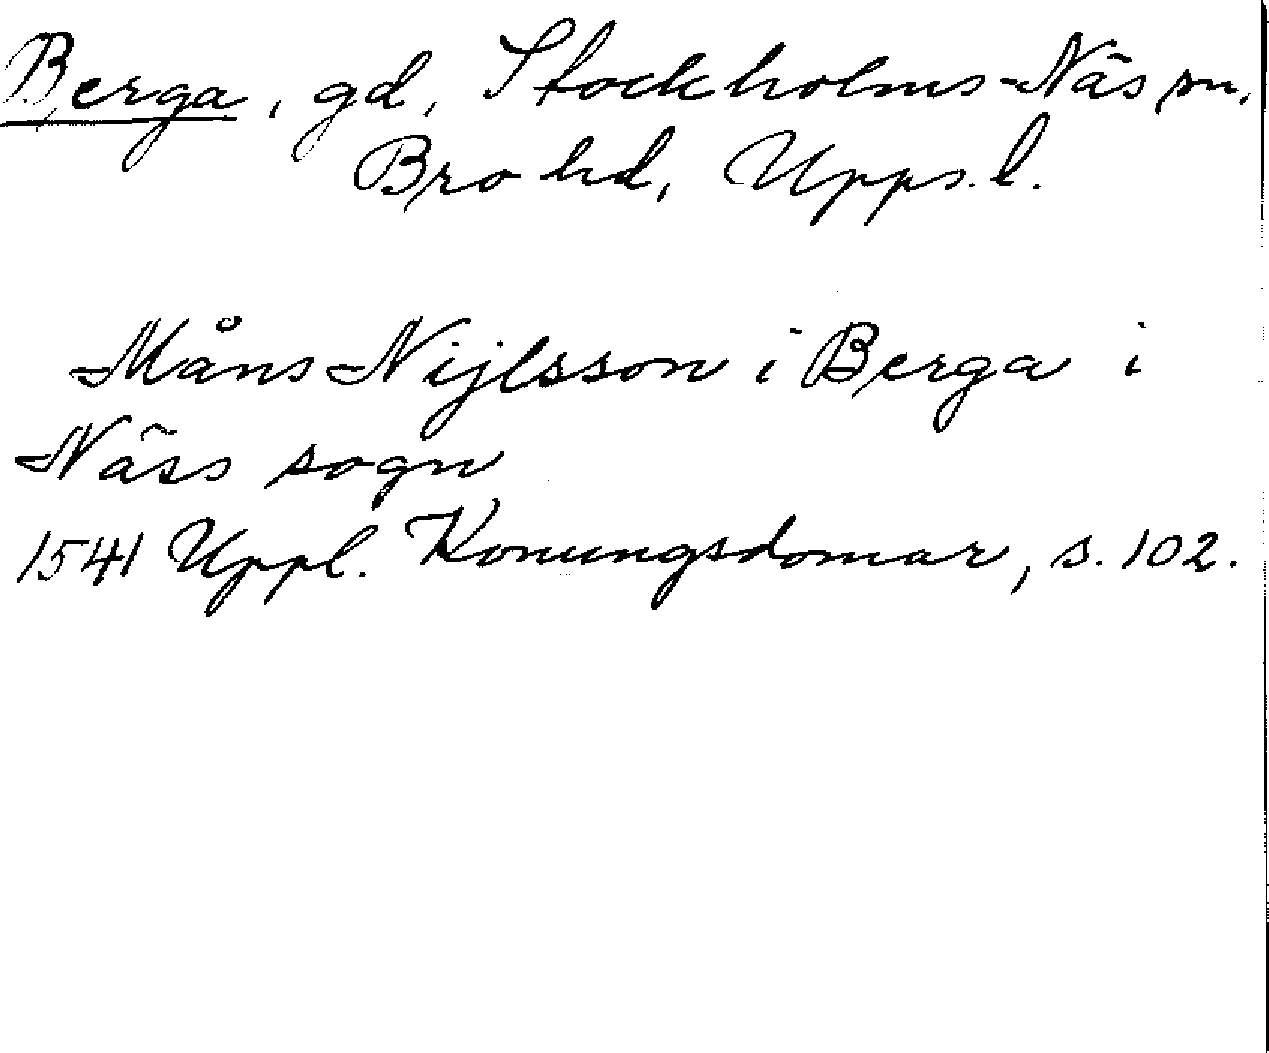 Berga, gd, Stockholms-Näs sn,
Bro hd, Upps. l.
Måns Nijlsson i Berga i
Näss sogn
1541 Uppl. Konungsdomar, s. 102.